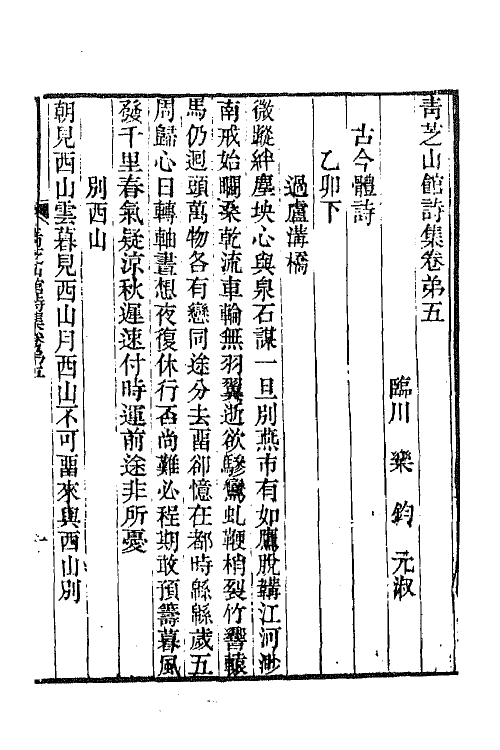 青芝山館詩集卷弟五
臨川 樂鈞 元淑
古今體詩
乙卯下
過盧溝橋
微蹤絆塵坱心與泉石謀一旦別燕市有如鷹脫韝江河渺
南戒始矙桑乾流車輪無羽翼逝欲驂鸞虬鞭梢裂竹響轅
馬仍迴頭萬物各有戀同途分去畱卻憶在都時緜緜歲五
周歸心日轉軸晝想夜復休行否尚難必程期敢預籌暮風
發千里春氣疑涼秋遲速付時運前途非所憂
別西山
朝見西山雲暮見西山月西山不可畱來與西山別
青芝山館詩集卷弟五
一